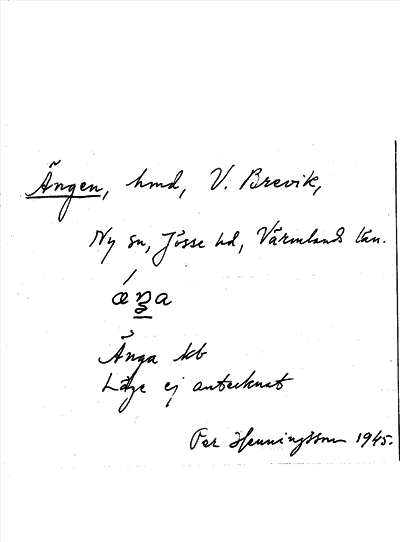 Ängen, hmd, V. Brevik,
Ny sn, Jösse hd, Värmlands län.
ǽŋa
Änga kb
Läge ej antecknat
Per Henningsson 1945.